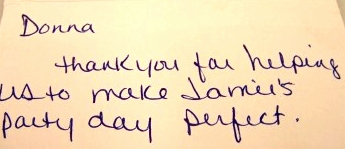 Donna
thank you for helping
us to make Jamie's
party day perfect.